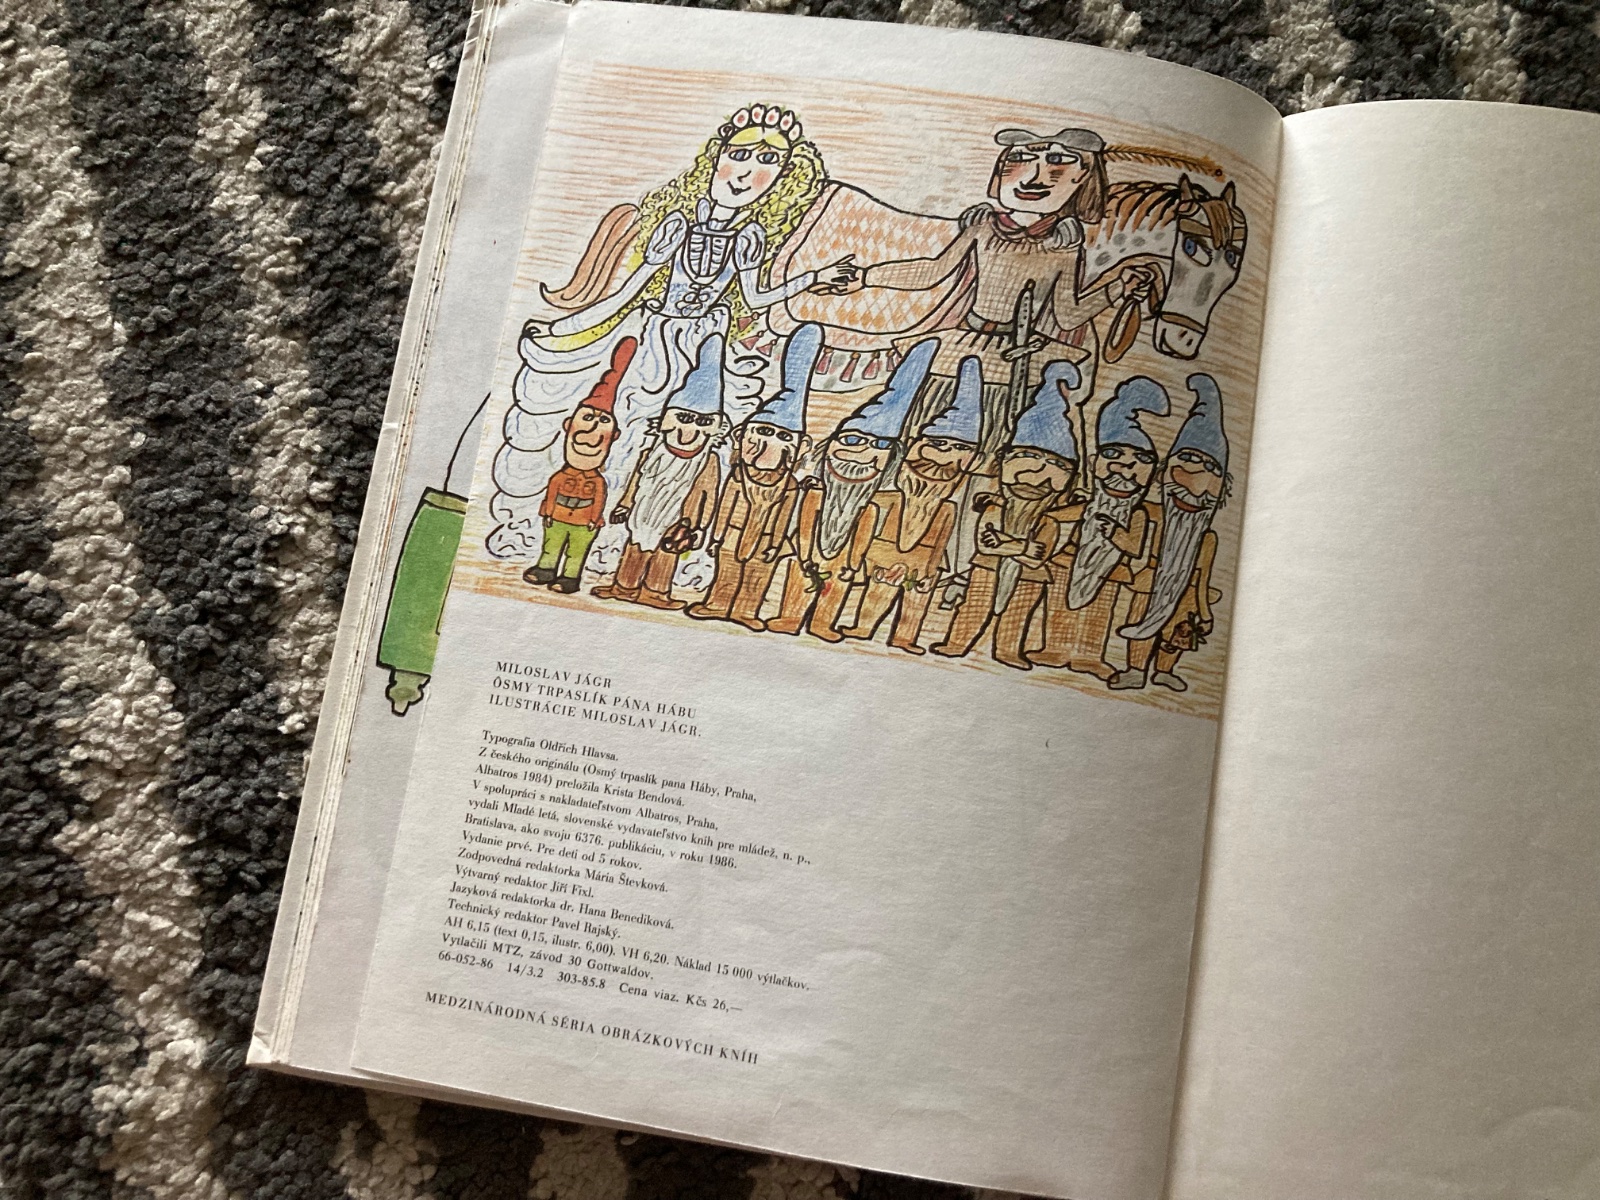 MILOSLAV JÁGR
ÔSMY TRPASLÍK PÁNA HÁBU
ILUSTRÁCIE MILOSLAV JÁGR.
Typografia Oldřich Hlavsa.
Z českého originálu (Osmý trpaslík pana Háby, Praha,
Albatros 1984) preložila Krista Bendová.
V spolupráci s nakladateľstvom Albatros, Praha,
vydali Mladé letá, slovenské vydavateľstvo kníh pre mládež, n. p.,
Bratislava, ako svoju 6376. publikáciu, v roku 1986.
Vydanie prvé. Pre deti od 5 rokov.
Zodpovedná redaktorka Mária Števková.
Výtvarný redaktor Jiří Fixl.
Jazyková redaktorka dr. Hana Benediková.
Technický redaktor Pavel Rajský.
AH 6,15 (text 0,15, ilustr. 6,00). VH 6,20. Náklad 15 000 výtlačkov.
Vytlačili MTZ, závod 30 Gottwaldov.
66-052-86 14/3.2 303-85.8 Cena viaz. Kčs 26,—
MEDZINÁRODNÁ SÉRIA OBRÁZKOVÝCH KNÍH